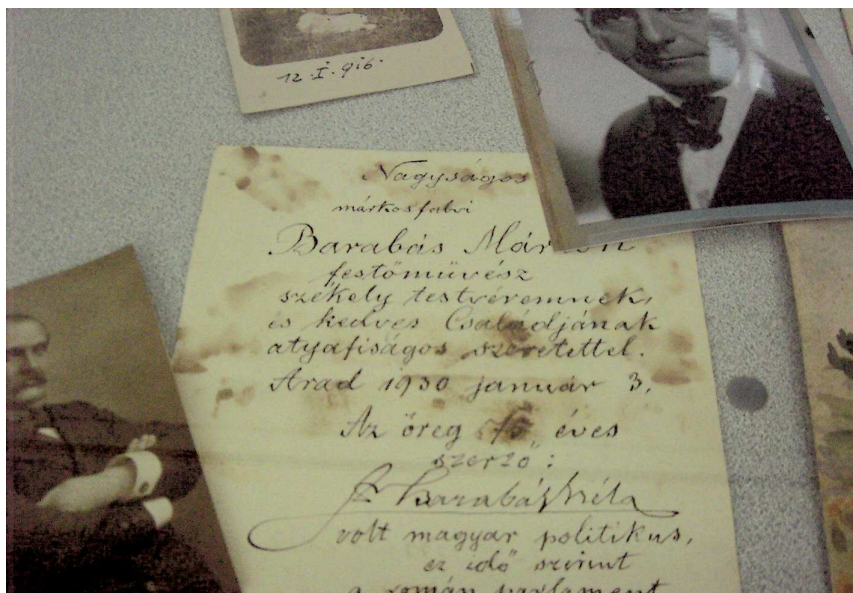 12. I. 916.
Nagyságos
márkosfalvi
Barabás Márton
festőművész
székely testvéremnek,
és kedves Családjának
atyafiságos szeretettel.
Arad 1930 január 3.
Az öreg 75 éves
szerző:
Dr Barabás Béla
volt magyar politikus,
ez idő szerint
a román parlament